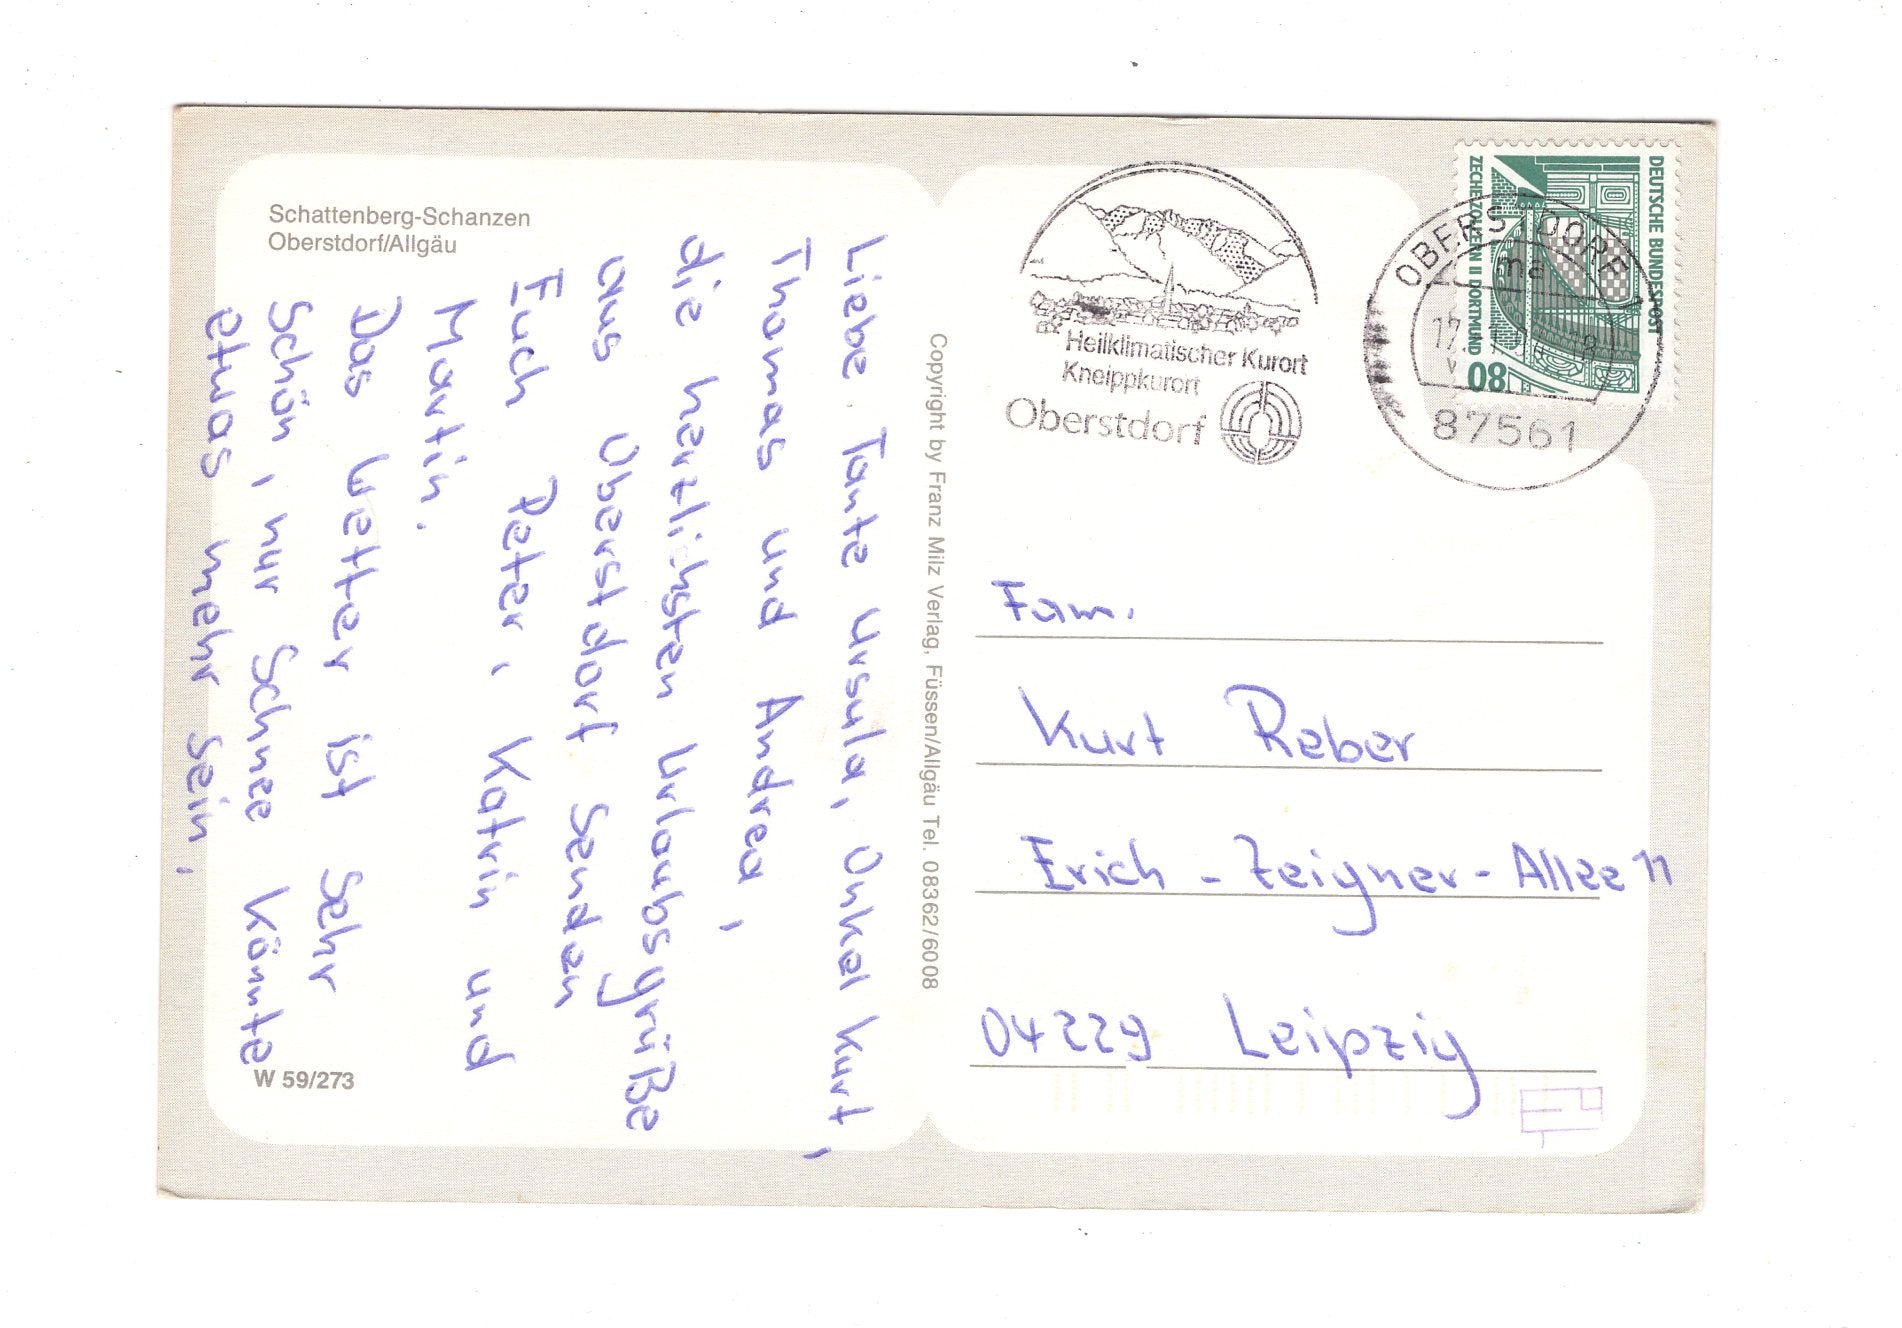 Schattenberg-Schanzen
Oberstdorf/Allgäu
Liebe Tante Ursula, Onkel Kurt,
Thomas und Andrea,
die herzlichsten Urlaubsgrüße
aus Oberstdorf senden
Euch Peter, Katrin und
Martin.
Das Wetter ist sehr
schön, nur Schnee könnte
etwas mehr sein.
W 59/273
Copyright by Franz Milz Verlag, Füssen/Allgäu Tel. 08362/6008
Heilklimatischer Kurort
Kneippkurort
Oberstdorf
DEUTSCHE BUNDESPOST
ZECHE ZOLLERN II DORTMUND
80
OBERSTDORF
ma
17.
87561
Fam.
Kurt Reber
Erich-Zeigner-Allee 11
04229 Leipzig